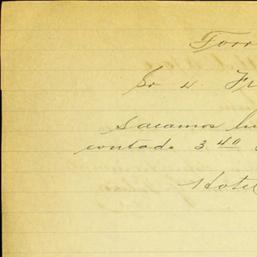 Torr
Sr D. Fr
Sacamos
contado 3 40
Hotel